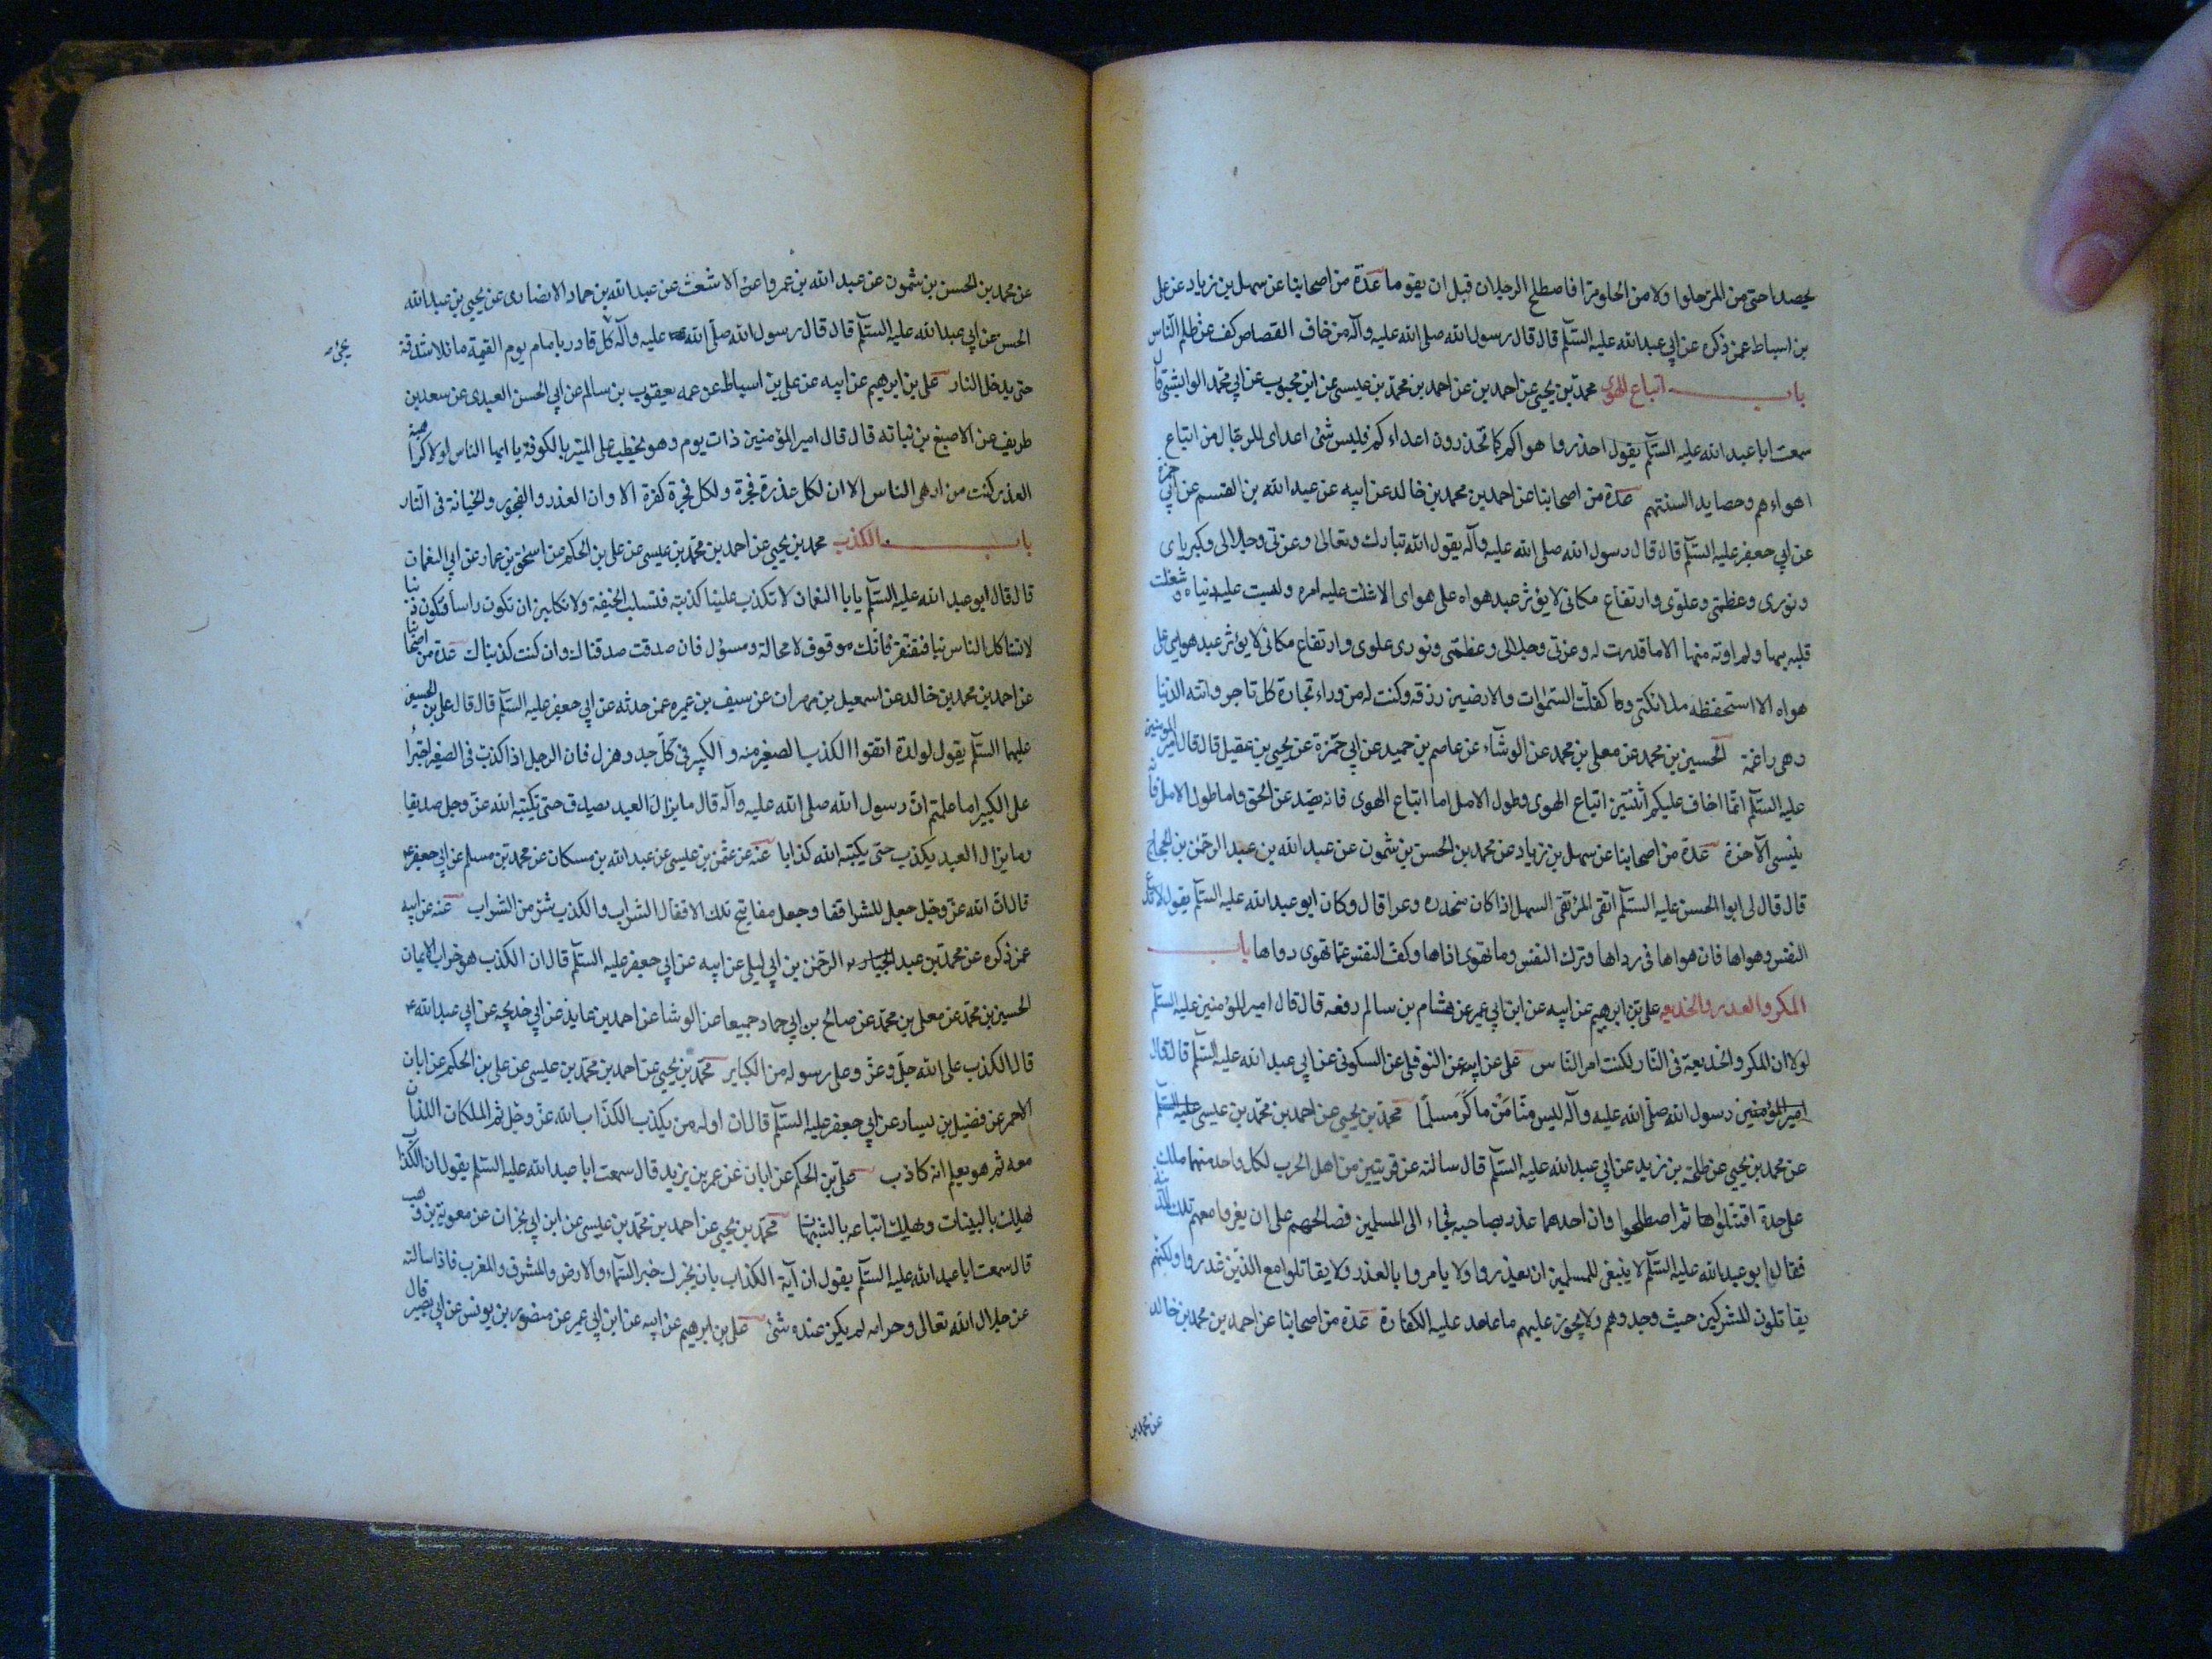 يحصد احتى من المر حلوا ولا من الحلو مرّا فاصطلح الرجلان قبل ان يقوما عدّة من اصحابنا عن سهل بن زياد عن على
بن اسباط عمن ذكره عن ابي عبد الله عليه السّلم قال قال رسول الله صلى الله عليه وآله من خاف القصاص كف عن ظلم النّاس
باب اتباع الهوى محمّد بن يحيى عن احمد بن عن احمد بن محمّد بن عيسى عن ابن محبوب عن ابي محمّد الوابشي قال
سمعت ابا عبد الله عليه السّلم يقول احذروا هواكم كما تحذرون اعداءكم فليس شئ اعدى للرجال من اتباع
اهواءهم وحصايد السنتهم عدّة من اصحابنا عن احمد بن محمد بن خالد عن ابيه عن عبد الله بن القسم عن ابي حمزة
عن ابي جعفر عليه السّلم قال قال رسول الله صلى الله عليه وآله يقول الله تبارك وتعالى وعزتي وجلالى وكبرياى
ونورى وعظمتى وعلوّى وارتفاع مكانى لا يؤثر عبد هواه على هواى الا شتت عليه امره ولبست عليه دنياه وشغلت
قلبه بها ولم اوته منها الا ما قدرت له وعزتى وجلالى وعظمتى ونورى علوى وارتفاع مكانى لا يؤثر عبد هواي على
هواه الا استحفظه ملائكتى وكفلت السّموات والارضين رزقه وكنت له من وراء تجارة كل تاجر واتته الدنيا
وهى راغمة الحسين بن محمد عن معلى بن محمد عن الوشّاء عن عاصم بن حميد عن ابي حمزة عن يحيى بن عقيل قال قال امير المومنين
عليه السّلم انّما اخاف عليكم اثنتين اتباع الهوى وطول الامل اما اتباع الهوى فانه يصّد عن الحق واما طول الامل فانه
ينسى الآخرة عدّة من اصحابنا عن سهل بن زياد عن محمد بن الحسن بن شمون عن عبد الله بن عبد الرحمن بن الحجاج
قال قال لى ابو الحسن عليه السّلم اتقى المرتقى السهل اذا كان منحدره وعرا قال وكان ابو عبد الله عليه السّلم يقول لا تدع
النفس وهواها فان هواها فى رداها وترك النفس وما تهوى اذاها وكف النفس عمّا تهوى دواها باب
المكر والغدر والخديعه على بن ابرهيم عن ابيه عن ابن ابي عمير عن هشام بن سالم رفعه قال قال امير المؤمنين عليه السّلم
لولا ان المكر والخديعة فى النّار لكنت امر النّاس على عن ابيه عن النوفلى عن السكونى عن ابي عبد الله عليه السّلم قال قال
امير المؤمنين رسول الله صلّى الله عليه وآله ليس منّا مَنْ ماكَرَ مسلمًا محمّد بن يحيى عن احمد بن محمّد بن عيسى عليه السّلم
عن محمد بن يحيى عن طلحة بن زيد عن ابي عبد الله عليه السّلم قال سالته عن قريتين من اهل الحرب لكل واحد منهما ملك
على حدة اقتتلواها ثم اصطلحوا وان احدهما غدر بصاحبه فجاء الى المسلمين فصالحهم على ان يغزوا معهم تلك المدينة
فقال ابو عبد الله عليه السّلم لا ينبغى للمسلمين ان يغدروا ولا يامروا بالغدر ولا يقاتلوا مع الّذين غدروا ولكنّهم
يقاتلون المشركين حيث وجدوهم ولا يجوز عليهم ما عاهد عليه الكفارة عدّة من اصحابنا عن احمد بن محمد بن خالد
عن محمد بن
عن محمد بن الحسن بن شمون عن عبد الله بن عمرو عن الاشعث عن عبد الله بن حماد الانصارى عن يحيى بن عبد الله
الحسن عن ابي عبد الله عليه السّلم قال قال رسول الله صلّى الله عليه وآله كلّ قادر بامام يوم القيمة مائلا شدقه
حتى يدخل النار على بن ابرهيم عن ابيه عن على بن اسباط عن عمه يعقوب بن سالم عن ابي الحسن العبدى عن سعد بن
طريف عن الاصبغ بن نباته قال قال امير المؤمنين ذات يوم وهو يخطب على المنبر بالكوفة يا ايها الناس لولا كراهية
الغدر كنت من ادهى الناس الا ان لكل غدرة فجرة ولكل فجرة كفرة الا وان الغدر والفجور والخيانة فى النّار
باب الكذب محمد بن يحيى عن احمد بن محمّد بن عيسى عن على بن الحكم عن اسحق بن عمار عن ابي النعمان
قال قال ابو عبد الله عليه السّلم يا با النعمان لا تكذب علينا كذبته فتسلب الحنيفة ولا تطلبن ان تكون راسا فتكون ذنبا
لا تستاكل الناس بنا فتفتقر فانّك موقوف لا محالة ومسؤل فان صدقت صدقناك وان كنت كذبناك عدّة من اصحابنا
عن احمد بن محمد بن خالد عن اسمعيل بن مهران عن سيف بن عميره عمن حدثه عن ابي جعفر عليه السّلم قال قال على بن الحسين
عليهما السّلم يقول لولدة اتقوا الكذب الصغير منه والكبير فى كلّ جد وهزل فان الرجل اذا كذب فى الصغير اجترأ
على الكبير اما علمتم انّ رسول الله صلى الله عليه وآله قال ما يزال العبد يصدق حتى يكتبه الله عزّ وجل صديقا
وما يزال العبد يكذب حتى يكتبه الله كذابا عنه عن عثمن بن عيسى عن عبد الله بن مسكان عن محمد بن مسلم عن ابي جعفر ع
قال انّ الله عزّ وجّل جعل للشر اقفا وجعل مفاتيح تلك الاقفال الشراب والكذب شرّ من الشراب عنه عن ابيه
عمن ذكره عن محمّد بن عبد الجبار الرحمن بن ابي ليلى عن ابيه عن ابي جعفر عليه السّلم قال ان الكذب هو خراب الايمان
الحسين بن محمّد عن معلى بن محمّد عن صالح بن ابي حماد جميعا عن الوشا عن احمد بن عايذ عن ابي خديجه عن ابي عبد الله ع
قال الكذب على الله جلّ وعزّ وعلى رسوله من الكباير محمّد بن يحيى عن احمد بن محمّد بن عيسى عن على بن الحكم عن ابان
الاحمر عن فضيل بن يسار عن ابي جعفر عليه السّلم قال ان اوله من يكذب الكذّاب الله عزّ وجّل ثم الملكان اللذان
معه ثم هو يعلم انه كاذب على بن الحكم عن ابان عن عمر بن يزيد قال سمعت ابا عبد الله عليه السّلم يقول ان الكذّاب
لهلك بالبينات ويهلك اتباعه بالشبهات محمّد بن يحيى عن احمد بن محمّد بن عيسى عن ابن ابي نجران عن معوية بن وهب
قال سمعت ابا عبد الله عليه السّلم يقول ان آية الكذاب بان يخبرك خبر السّماء والارض والمشرق والمغرب فاذا سالته
عن حلال الله تعالى وحرامه لم يكن عنده شئ على بن ابرهيم عن ابيه عن ابن ابي عمير عن منصور بن يونس عن ابي بصير قال